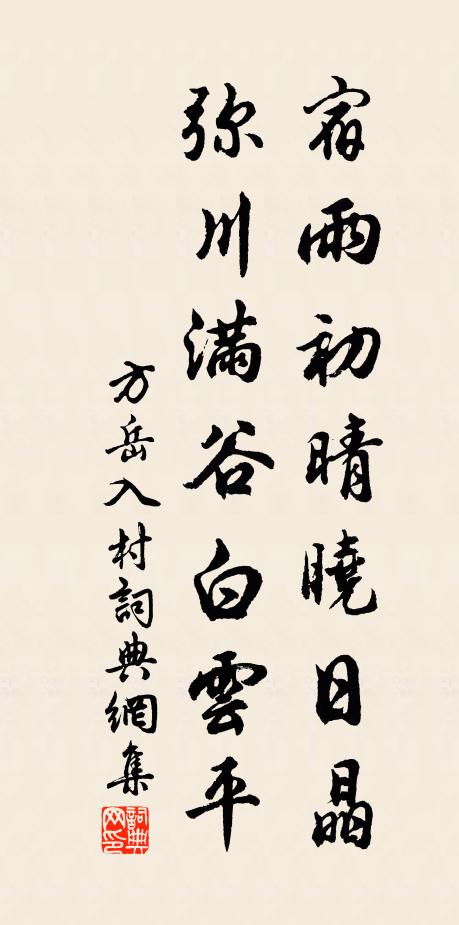 宿雨初晴曉日晶
弥川滿谷白雲平
方岳入村詞典網集
詞典網印